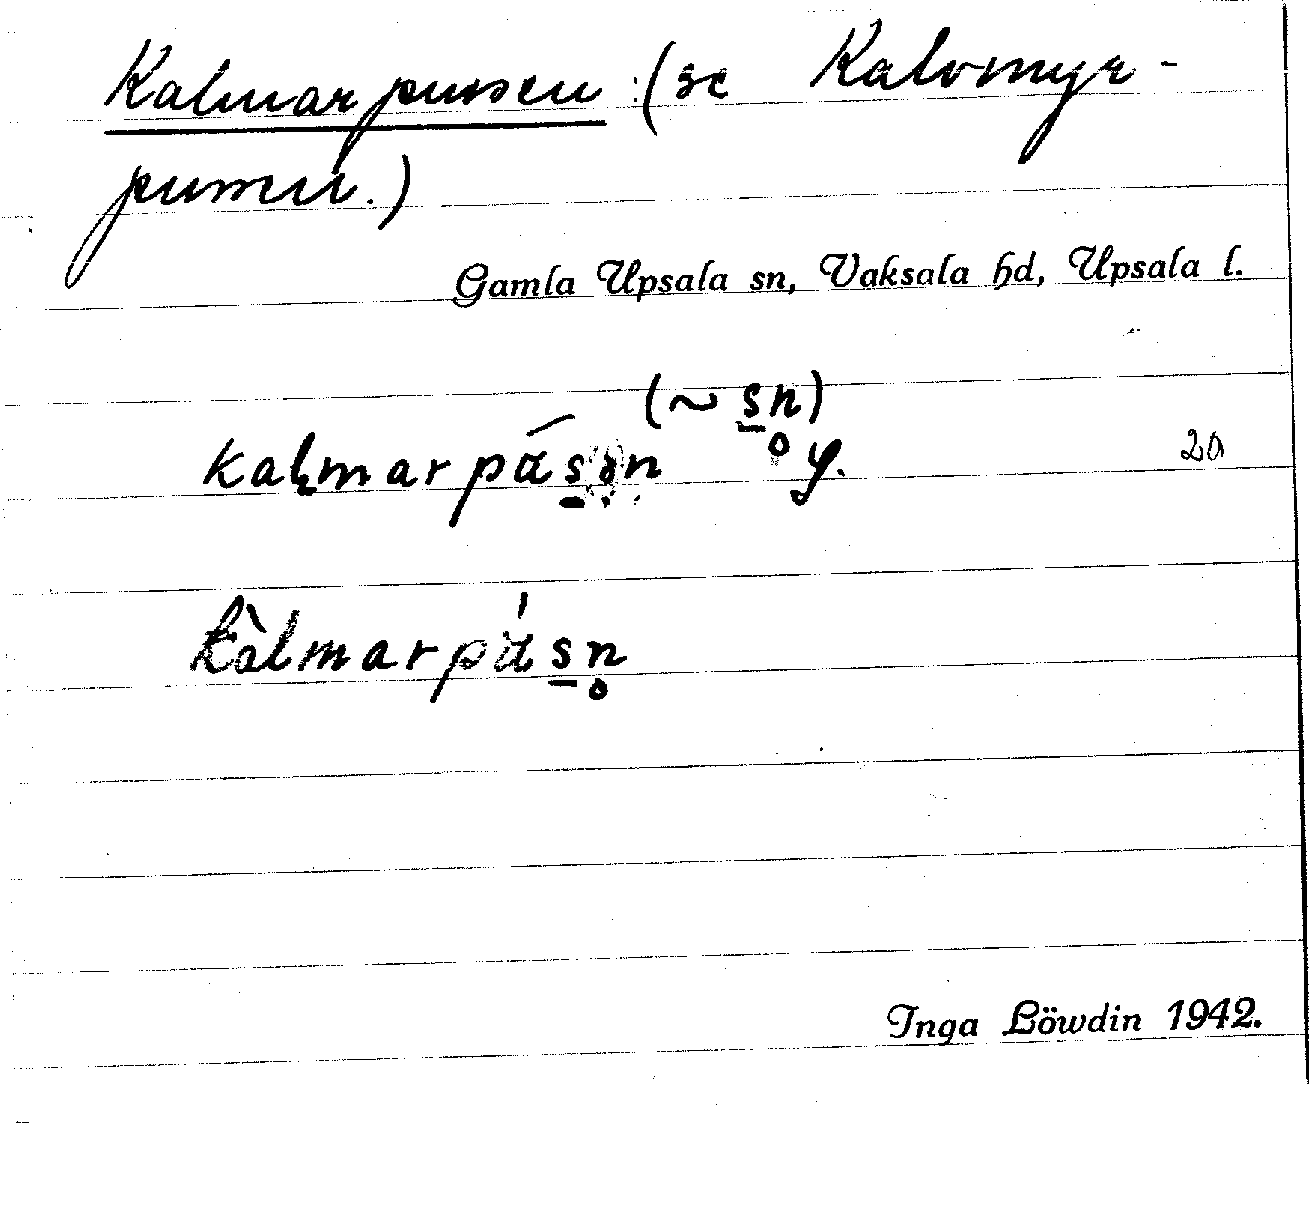 Kalmarpussen (se Kalvmyr-
pussen.)
Gamla Upsala sn, Vaksala hd, Upsala l.
(~ s̲n̥)
kalmarpás̲ən y. 20
kàlmarpás̲n̥
Inga Löwdin 1942.